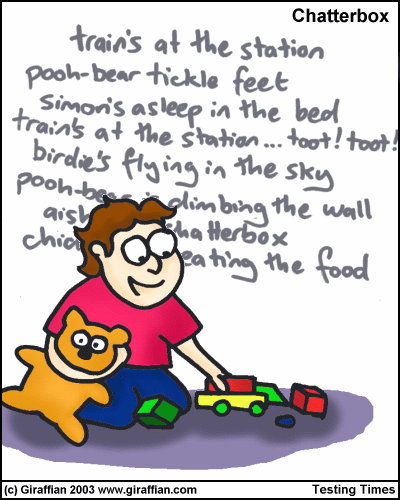 Chatterbox
train's at the station
pooh-bear tickle feet
Simon's asleep in the bed
train's at the station... toot! toot!
birdie's flying in the sky
pooh-bear climbing the wall
chatterbox
eating the food
(c) Giraffian 2003 www.giraffian.com
Testing Times